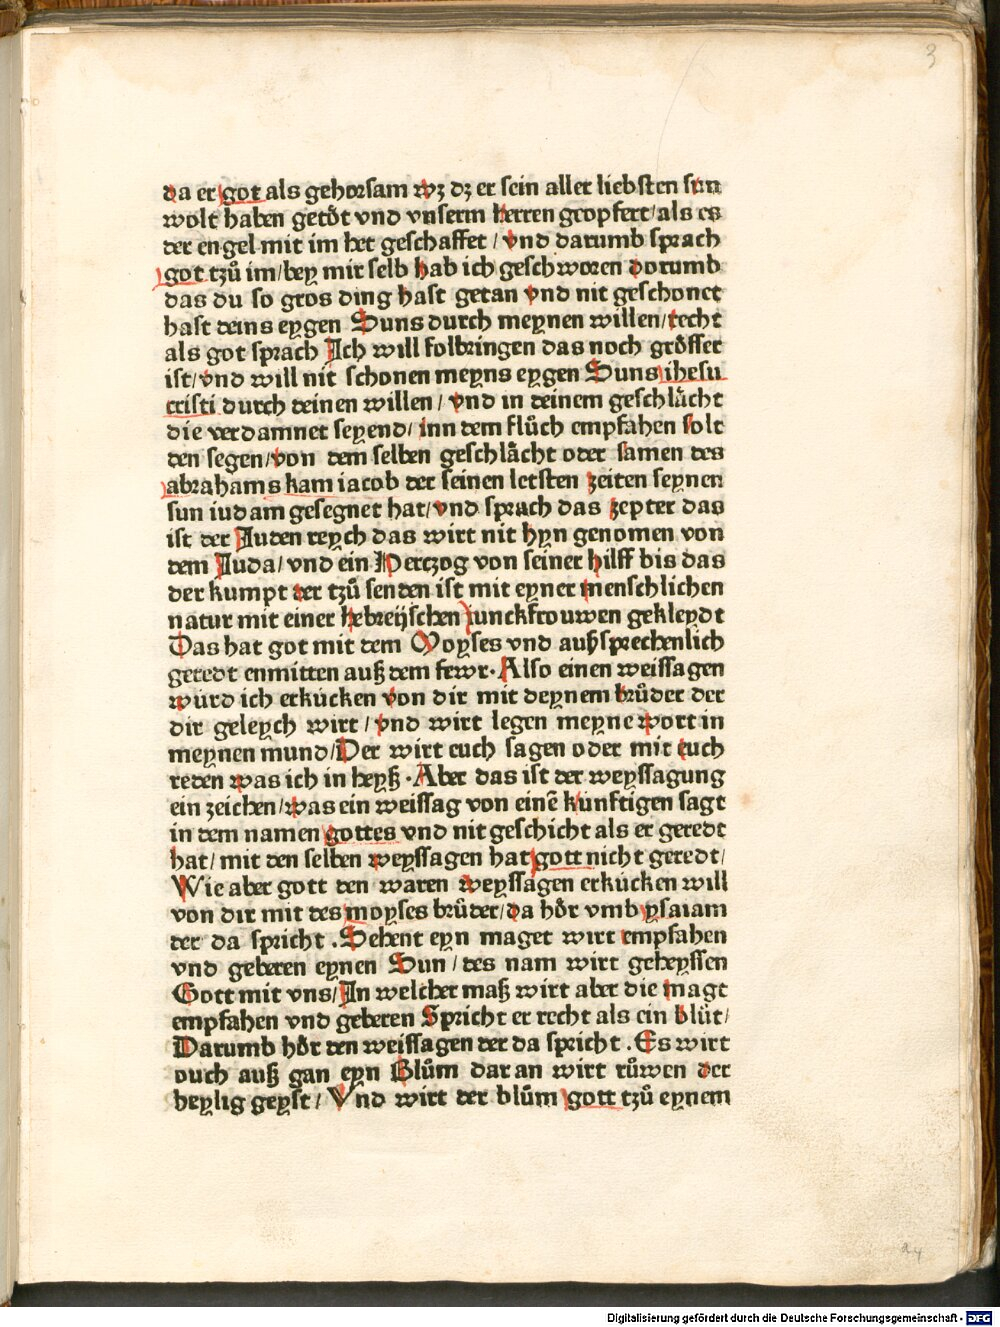 3
da er got als gehorsam wz dz er sein aller liebsten sun
wolt haben getöt vnd vnserm herren geopfert/als es
der engel mit im het geschaffet/vnd darumb sprach
got tzů im/bey mir selb hab ich geschworen dorumb
das du so gros ding hast getan vnd nit geschonet
hast deins eygen Suns durch meynen willen/recht
als got sprach Ich will folbringen das noch grösser
ist/vnd will nit schonen meyns eygen Suns ihesu
cristi durch deinen willen/vnd in deinem geschlächt
die verdamnet seyend/inn dem flůch empfahen solt
den segen/von dem selben geschlächt oder samen des
abrahams kam iacob der seinen letsten zeiten seynen
sun iudam gesegnet hat/vnd sprach das zepter das
ist der Juden reych das wirt nit hyn genomen von
dem Juda/vnd ein Hertzog von seiner hilff bis das
der kumpt der tzů senden ist mit eyner menschlichen
natur mit einer hebreijschen junckfrouwen gekleydt
Das hat got mit dem Moyses vnd außsprechenlich
geredt enmitten auß dem fewr. Also einen weissagen
würd ich erkücken von dir mit deynem brůder der
dir geleych wirt/vnd wirt legen meyne wort in
meynen mund/Der wirt euch sagen oder mit euch
reden was ich in heyß. Aber das ist der weyssagung
ein zeichen/was ein weissag von einē künftigen sagt
in dem namen gottes vnd nit geschicht als er geredt
hat/mit den selben weyssagen hat gott nicht geredt/
Wie aber gott den waren weyssagen erkücken will
von dir mit des moyses brůder/da hör vmb ysaiam
der da spricht. Sehent eyn maget wirt empfahen
vnd geberen eynen Sun/des nam wirt geheyssen
Gott mit vns/In welcher maß wirt aber die magt
empfahen vnd geberen Spricht er recht als ein blůt/
Darumb hör den weissagen der da spricht. Es wirt
ouch auß gan eyn Blům daran wirt růwen der
heylig geyst/Vnd wirt der blům gott tzů eynem
a4
Digitalisierung gefördert durch die Deutsche Forschungsgemeinschaft - DFG